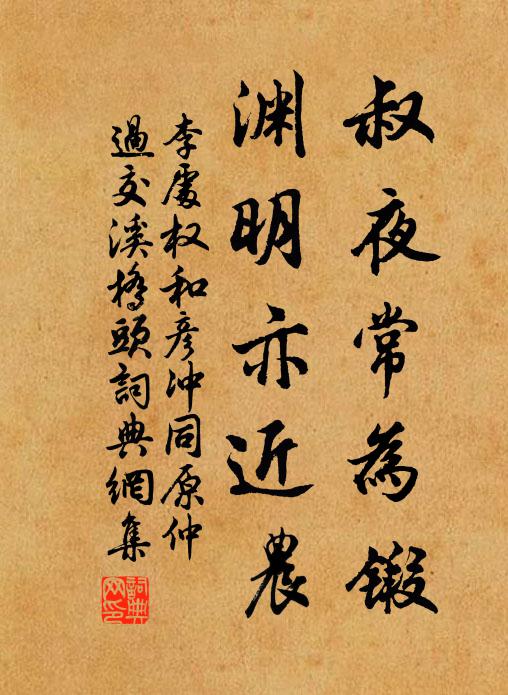 叔夜常為鍛
渊明亦近農
李處权和彦冲同原仲
過交溪橋頭詞典網集
詞典网印